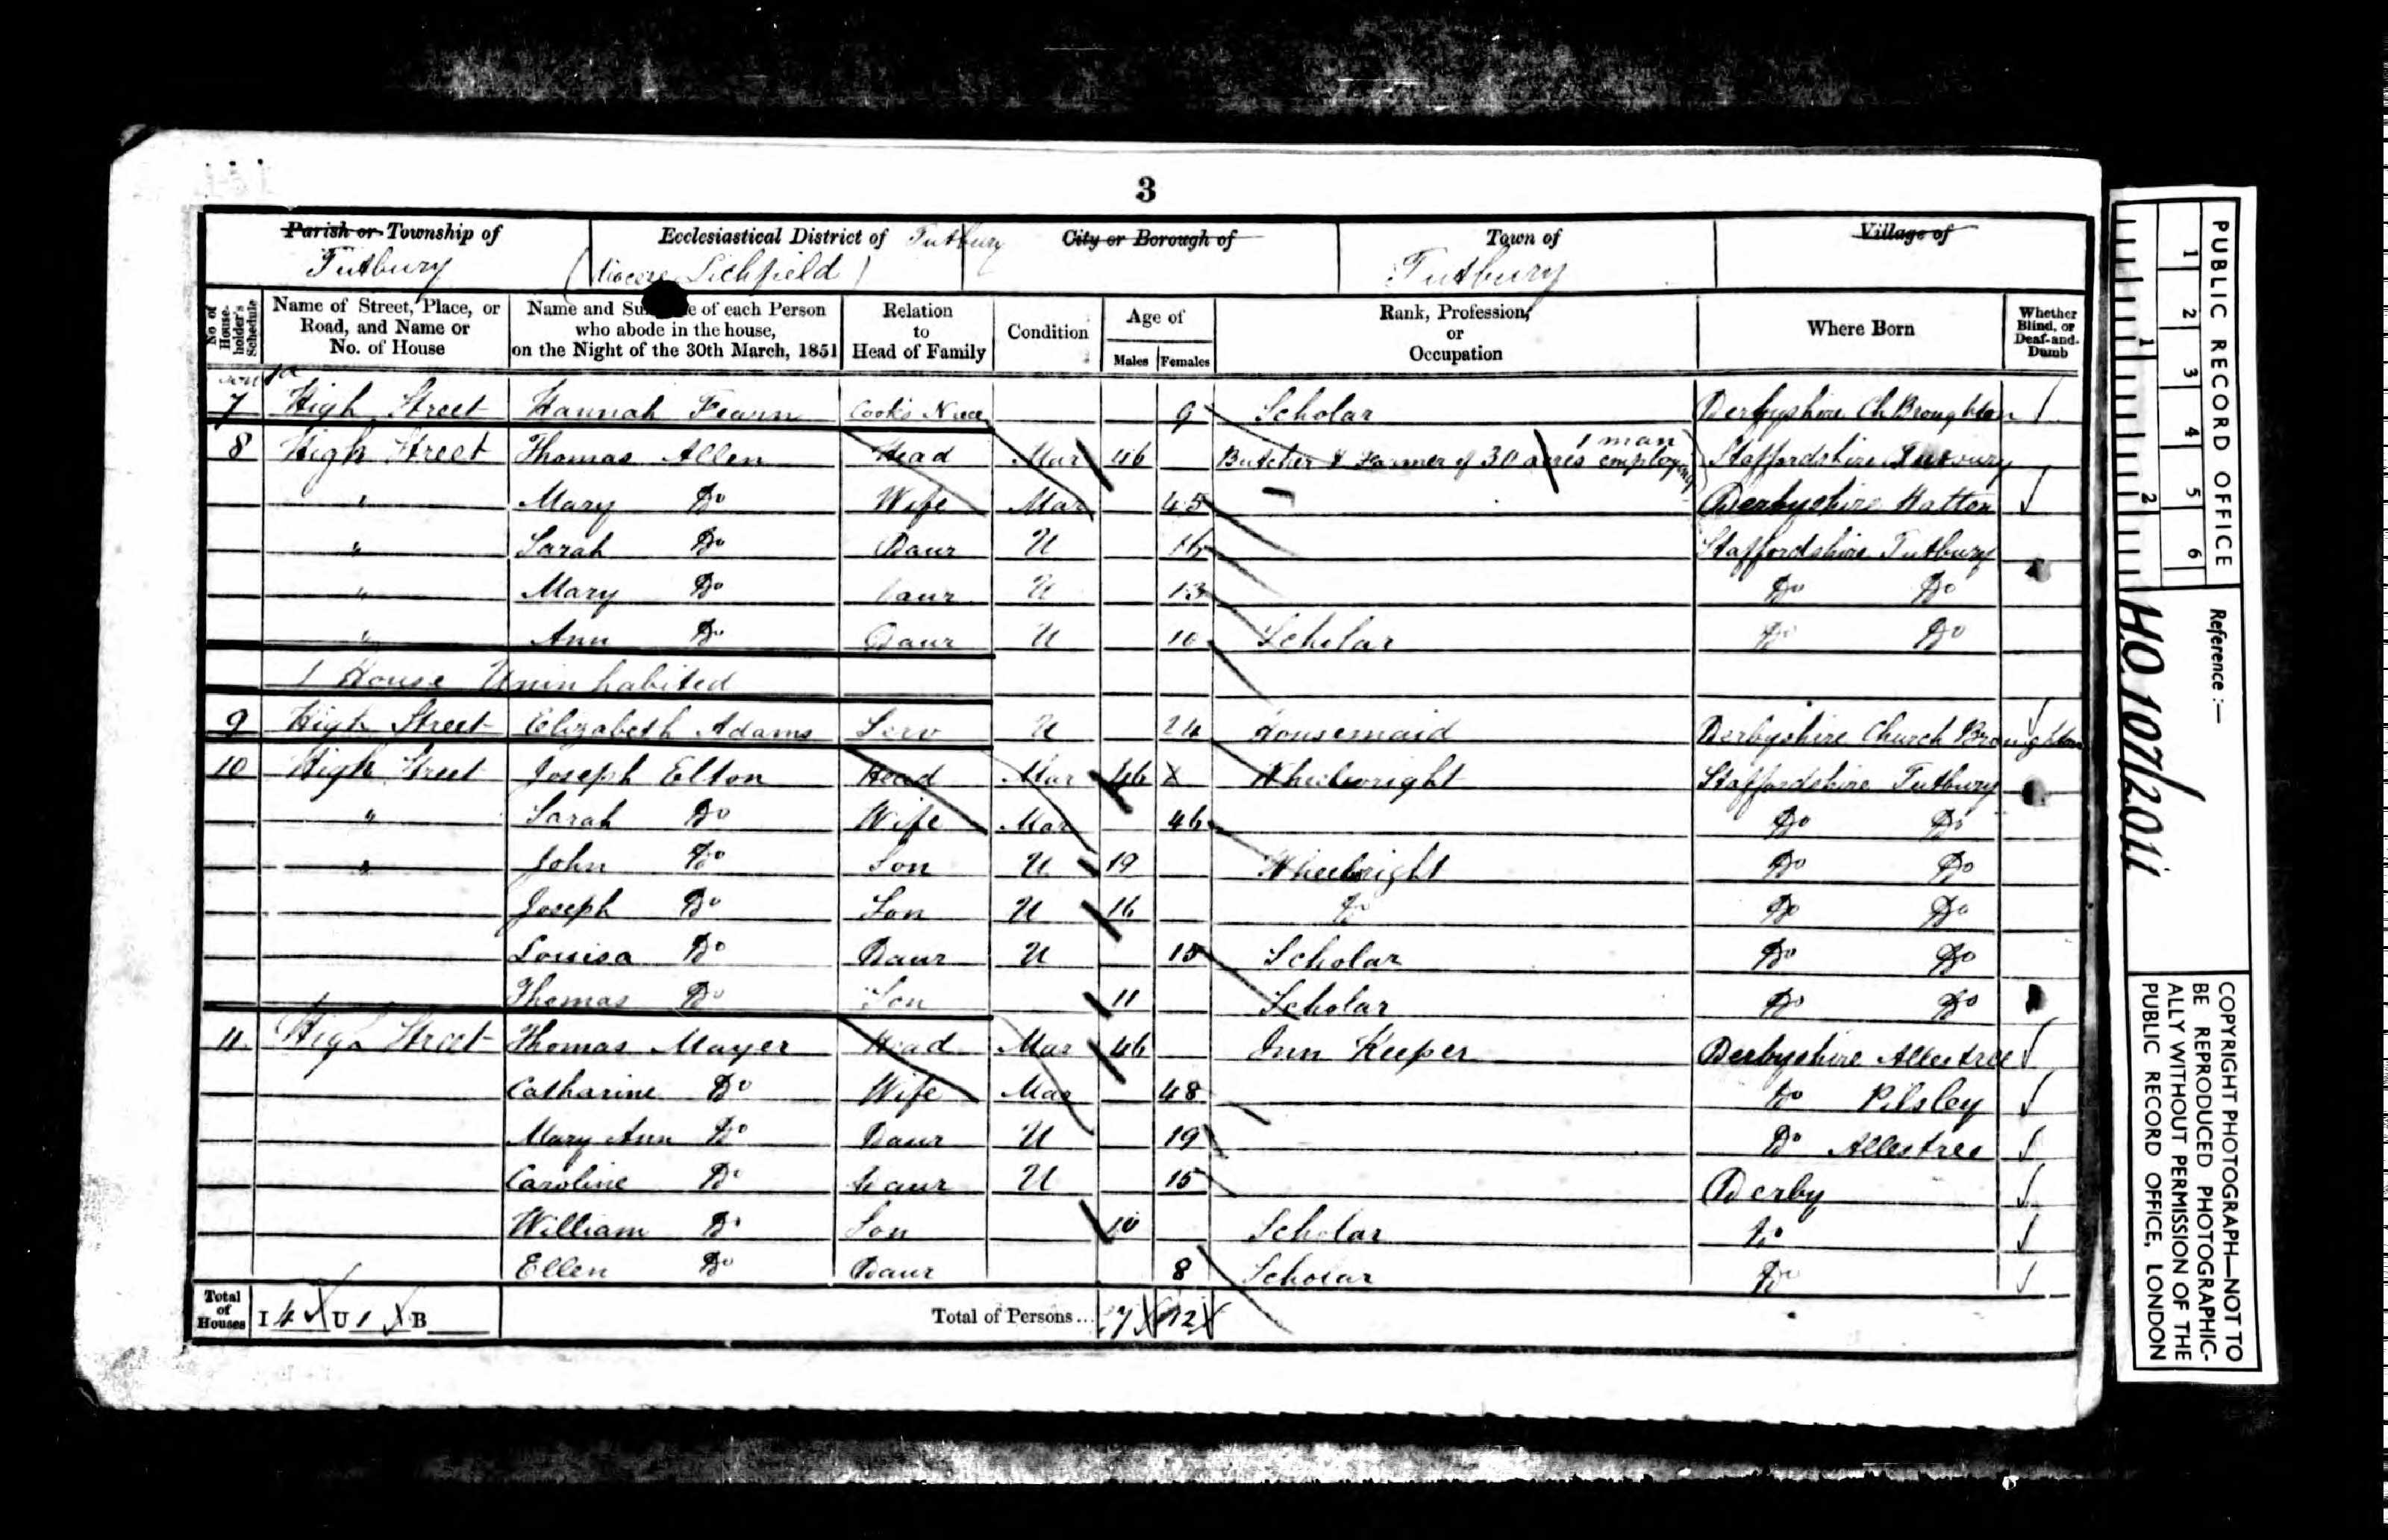 3
Parish or Township of Tutbury
Ecclesiastical District of Tutbury (Diocese Lichfield)
City or Borough of
Town of Tutbury
Village of
No. of House-holder's Schedule
Name of Street, Place, or Road, and Name or No. of House
Name and Su e of each Person who abode in the house, on the Night of the 30th March, 1851
Relation to Head of Family
Condition
Age of
Males Females
Rank, Profession, or Occupation
Where Born
Whether Blind, or Deaf-and-Dumb
7 High Street Hannah Fearn Cook's Niece 9 Scholar Derbyshire Ch Broughton
8 High Street Thomas Allen Head Mar 46 Butcher & Farmer of 30 acres employing 1 man Staffordshire Tutbury
" Mary Do Wife Mar 45 Derbyshire Hatton
" Sarah Do Daur U 16 Staffordshire Tutbury
" Mary Do Daur U 13 Do Do
" Ann Do Daur U 10 Scholar Do Do
1 House Uninhabited
9 High Street Elizabeth Adams Serv U 24 Housemaid Derbyshire Church Broughton
10 High Street Joseph Elton Head Mar 46 Wheelwright Staffordshire Tutbury
" Sarah Do Wife Mar 46 Do Do
" John Do Son U 19 Wheelwright Do Do
Joseph Do Son U 16 Do Do Do
Louisa Do Daur U 15 Scholar Do Do
Thomas Do Son 11 Scholar Do Do
11 High Street Thomas Mayer Head Mar 46 Inn Keeper Derbyshire Allestree
Catharine Do Wife Mar 48 Do Pilsley
Mary Ann Do Daur U 19 Do Allestree
Caroline Do Daur U 15 Derby
William Do Son 10 Scholar Do
Ellen Do Daur 8 Scholar Do
Total of Houses I 4 U 1 B
Total of Persons... 7 12
PUBLIC RECORD OFFICE
1 2 3 4 5 6
1 2
Reference :-
H.O. 107/2011
COPYRIGHT PHOTOGRAPH—NOT TO
BE REPRODUCED PHOTOGRAPHIC-
ALLY WITHOUT PERMISSION OF THE
PUBLIC RECORD OFFICE, LONDON